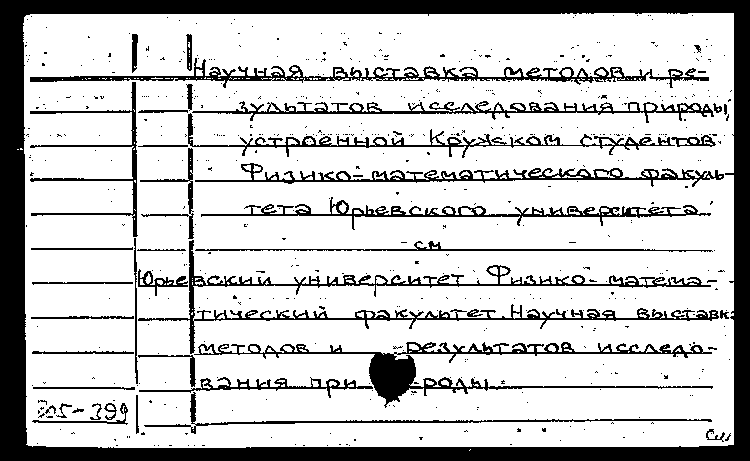 Научная выставка методов и ре-
зультатов исследования природы,
устроенной Кружком студентов
Физико-математического факуль-
тета Юрьевского университета
см
Юрьевский университет. Физико-матема-
тический факультет. Научная выставка
методов и результатов исследо-
вания природы.
См